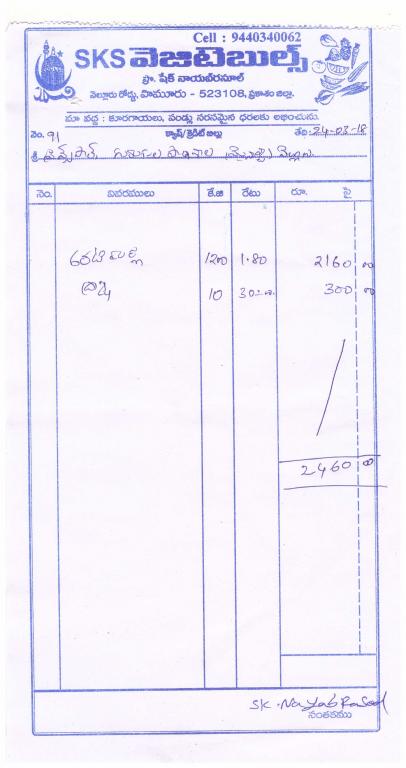 Cell : 9440340062
SKS వెజిటెబుల్స్
ప్రొ. షేక్ నాయబ్‌రసూల్
నెల్లూరు రోడ్డు, పామూరు - 523108, ప్రకాశం జిల్లా.
మా వద్ద : కూరగాయలు, పండ్లు సరసమైన ధరలకు లభించును.
నెం. 91 క్యాష్/క్రెడిట్ బిల్లు తేది: 24-03-18
శ్రీ
నెం. వివరములు కే.జి రేటు రూ. పై
120 1.80 2160 00
ద్రాక్ష 10 30 300 00
2460 00
SK. Nayab Rasool
సంతకము